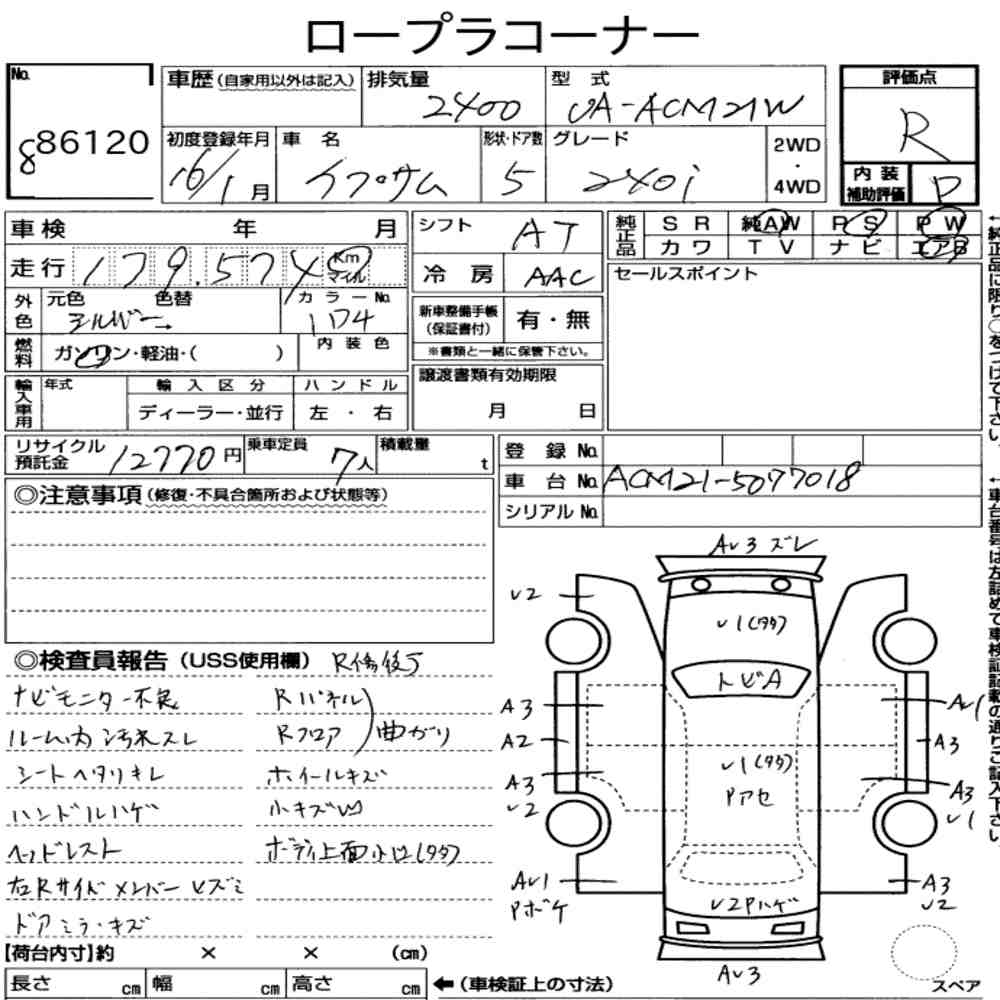 ロープラコーナー
No.
886120
車歴(自家用以外は記入)
排気量
2400
型 式
UA-ACM21W
初度登録年月
16/1月
車 名
イプサム
形状・ドア数
5
グレード
240i
2WD
・
4WD
評価点
R
内 装
補助評価
D
車検 年 月
走行 179.574 Km マイル
外色
元色 シルバー
色替
カラーNo.
1D4
燃料
ガソリン・軽油・( )
内 装 色
輸入車用
年式
輸 入 区 分
ディーラー・並行
ハ ン ド ル
左 ・ 右
シフト
AT
冷 房
AAC
新車整備手帳
(保証書付)
有・無
※書類と一緒に保管下さい。
譲渡書類有効期限
月 日
純正品
SR 純AW PS PW
カワ TV ナビ エアB
セールスポイント
←純正品に限り○をつけて下さい。
リサイクル
預託金
12770円
乗車定員
7人
積載量
t
登 録 No.
車 台 No.
ACM21-5077018
シリアル No.
←車台番号は左詰めで車検証記載の通りご記入下さい。
◎注意事項(修復・不具合箇所および状態等)
◎検査員報告(USS使用欄)
R傷後5
ナビモニター不良
ルーム内汚れスレ
シートヘタリキレ
ハンドルハゲ
ヘッドレスト
右Rサイドメンバーヒズミ
ドアミラーキズ
Rパネル
Rフロア
曲がり
ホイールキズ
小キズ凹
ボディ上面小凹(タタ)
AU3ズレ
U2
U1(タタ)
トビA
A3
A2
A3
U2
AU1
A3
A3
U1
U1(タタ)
Pアセ
AU1
Pボケ
U2Pハゲ
A3
U2
AU3
スペア
【荷台内寸】約 × × (cm)
長さ cm 幅 cm 高さ cm
←(車検証上の寸法)